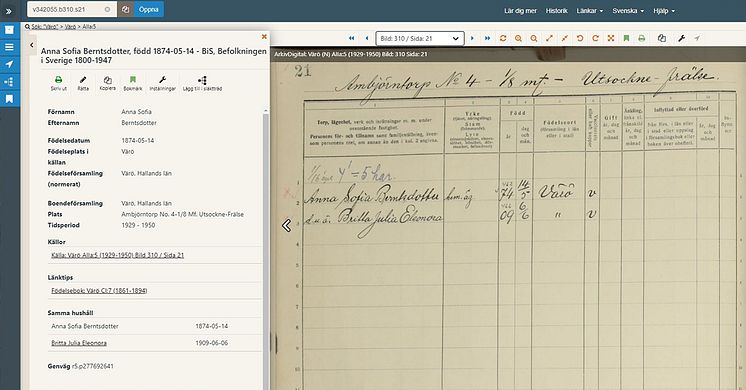 v342055.b310.s21
Öppna
Lär dig mer Historik Länkar Svenska Hjälp
Sök: "Värö" > Värö > AIIa:5
Bild: 310 / Sida: 21
ArkivDigital: Värö (N) AIIa:5 (1929-1950) Bild: 310 Sida: 21
Anna Sofia Berntsdotter, född 1874-05-14 - BiS, Befolkningen
i Sverige 1800-1947
Skriv ut Rätta Kopiera Bokmärk Inställningar Lägg till i släktträd
Förnamn Anna Sofia
Efternamn Berntsdotter
Födelsedatum 1874-05-14
Födelseplats i Värö
källan
Födelseförsamling Värö, Hallands län
(normerat)
Boendeförsamling Värö, Hallands län
Plats Ambjörntorp No. 4-1/8 Mf. Utsockne-Frälse
Tidsperiod 1929 - 1950
Källor
Källa: Värö AIIa:5 (1929-1950) Bild 310 / Sida 21
Länktips
Födelsebok: Värö CI:7 (1861-1894)
Samma hushåll
Anna Sofia Berntsdotter 1874-05-14
Britta Julia Eleonora 1909-06-06
Genväg r5.p277692641
21
Ambjörntorp No 4 - 1/8 mf. - Utsockne-frälse.
Torp, lägenhet, verk och inrättningar m. m. under
ovanstående fastighet.
Personers för- och tillnamn samt familjeställning, även-
som personens titel, om annan än den i kol. 2 angivna.
Yrke
Stam
Lyte
Född
år
dag och mån.
Födelseort
(församling i län
eller i stad)
Gift
år, dag
och
månad
Inflyttad eller överförd
år, dag
och
månad
4' = 5 har.
1 Anna Sofia Berntsdotter hem.äg 74 14/5 Värö v
d. u. ä. Britta Julia Eleonora 09 6/6 " v